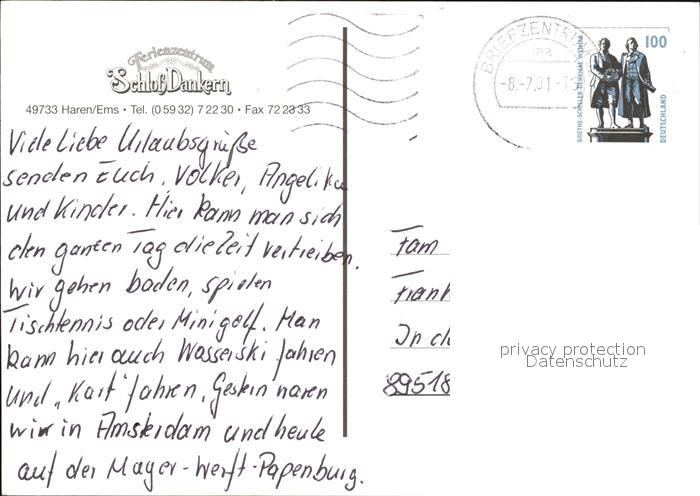 Ferienzentrum
Schloß Dankern
49733 Haren/Ems • Tel. (0 59 32) 7 22 30 • Fax 72 23 33
Viele Liebe Urlaubsgrüße
senden Euch, Volker, Angelika
und Kinder. Hier kann man sich
den ganzen Tag die Zeit vertreiben.
Wir gehen baden, spielen
Tischtennis oder Minigolf. Man
kann hier auch Wasserski fahren
und „Kart" fahren, Gestern waren
wir in Amsterdam und heute
auf der Mayer-Werft-Papenburg.
BRIEFZENTRUM
-8.-7.01-
100
GOETHE-SCHILLER-DENKMAL WEIMAR
DEUTSCHLAND
Fam
Frank
In d
89518
privacy protection
Datenschutz